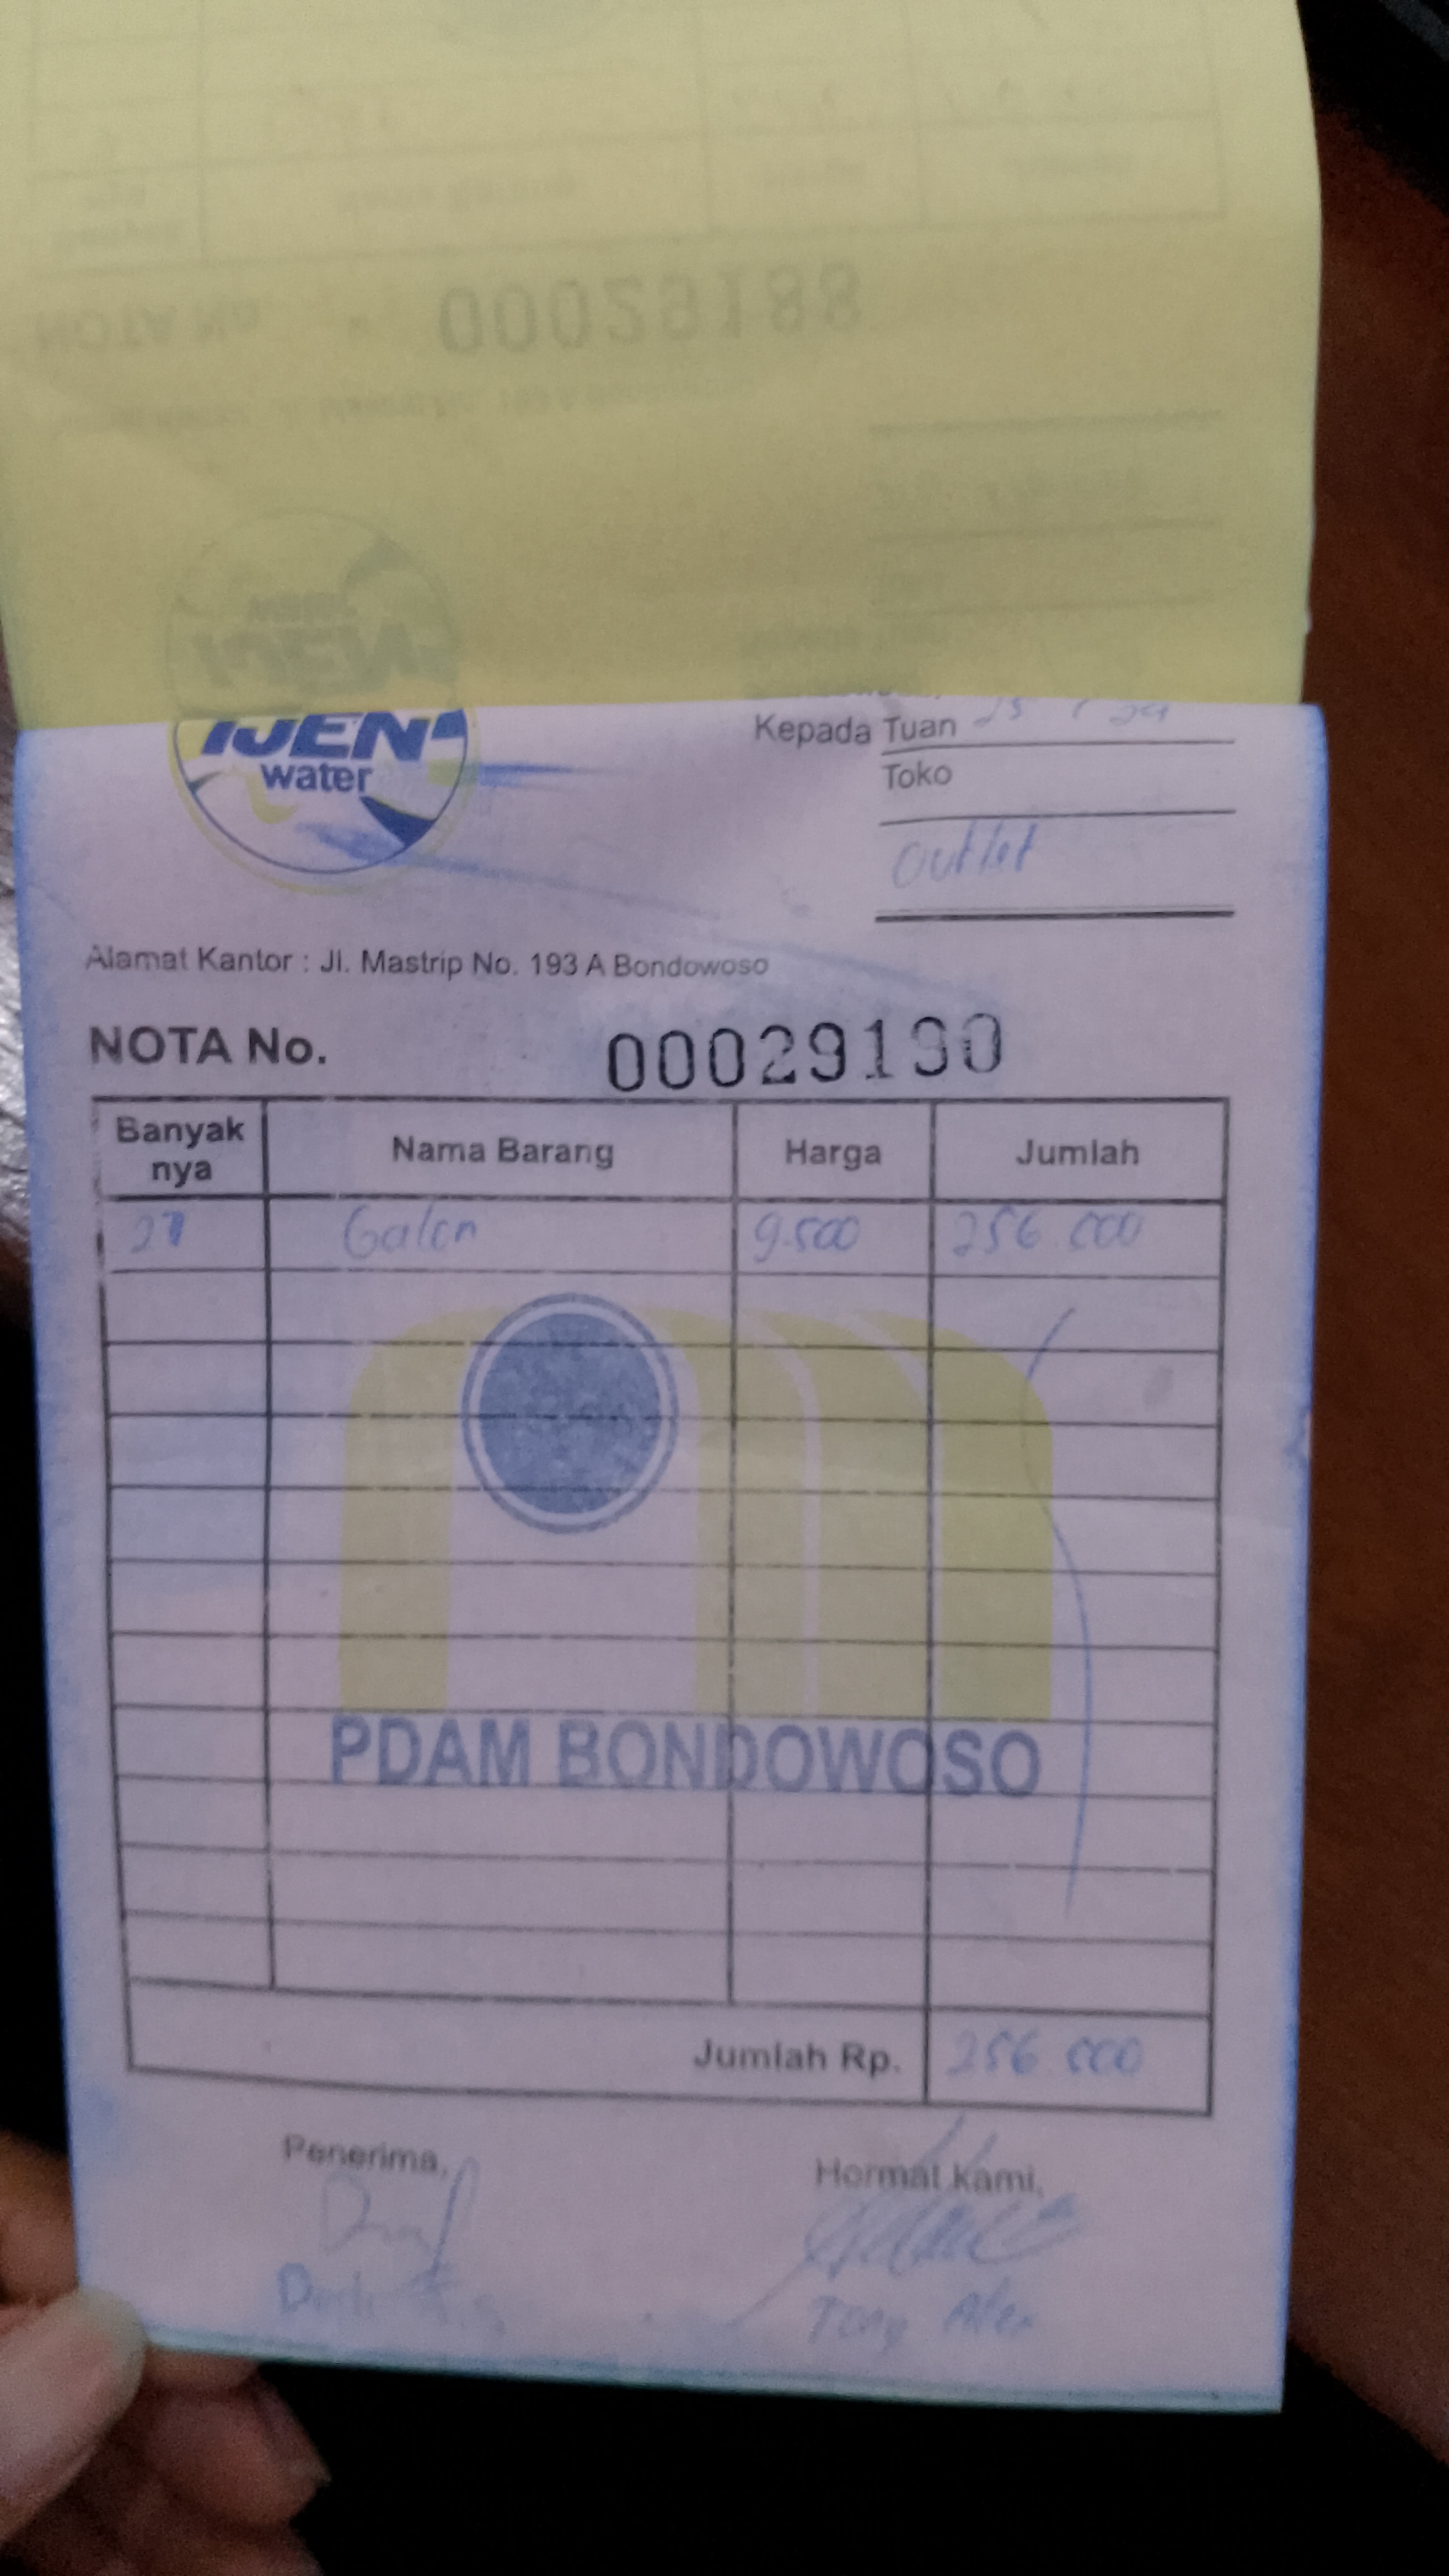 00029188
IJEN
water
Kepada Tuan
Toko
Outlet
Alamat Kantor : Jl. Mastrip No. 193 A Bondowoso
NOTA No. 00029190
Banyak nya Nama Barang Harga Jumlah
27 Galon 9.500 256.000
PDAM BONDOWOSO
Jumlah Rp. 256.000
Penerima, Hormat kami,
Tony